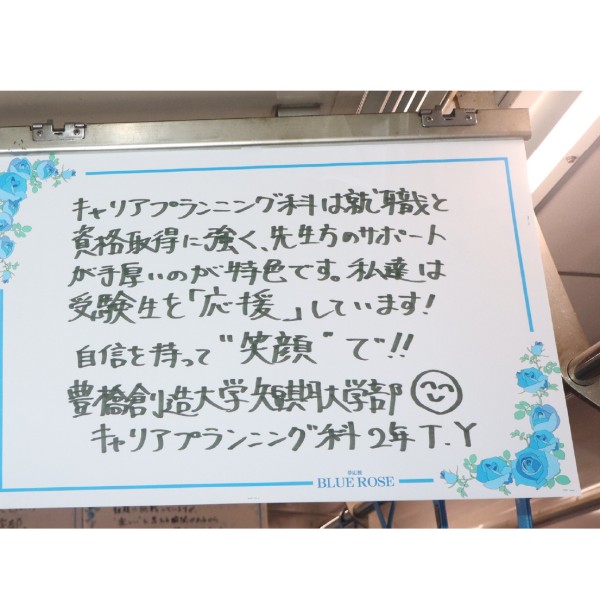 キャリアプランニング科は就職と
資格取得に強く、先生方のサポート
が手厚いのが特色です。私達は
受験生を「応援」しています!
自信を持って"笑顔"で!!
豊橋創造大学短期大学部
キャリアプランニング科2年T.Y
BLUE ROSE